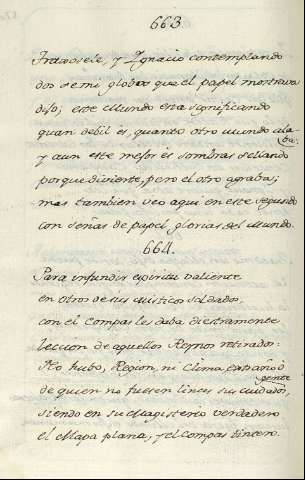 663
Franosele, y Ygnacio contemplando
dos semi globos que el papel mostrava
dijo; este Mundo esta significando
quan debil es, quanto otro mundo ala
ba.
y aun este mejor es sombras sellando
porque divierte, pero el otro agraba;
mas tambien veo aqui en este segundo
con señas de papel glorias del Mundo.
664.
Para infundir espiritu valiente
en otros de sus misticos soldados,
con el Compas les daba diestramente
leccion de aquellos Reynos retirados:
No hubo, Region, ni Clima, extraño ò
gente
de quien no fuesen lineas sus cuidados,
siendo en su Magisterio verdadero
el Mapa plana, y el Compas